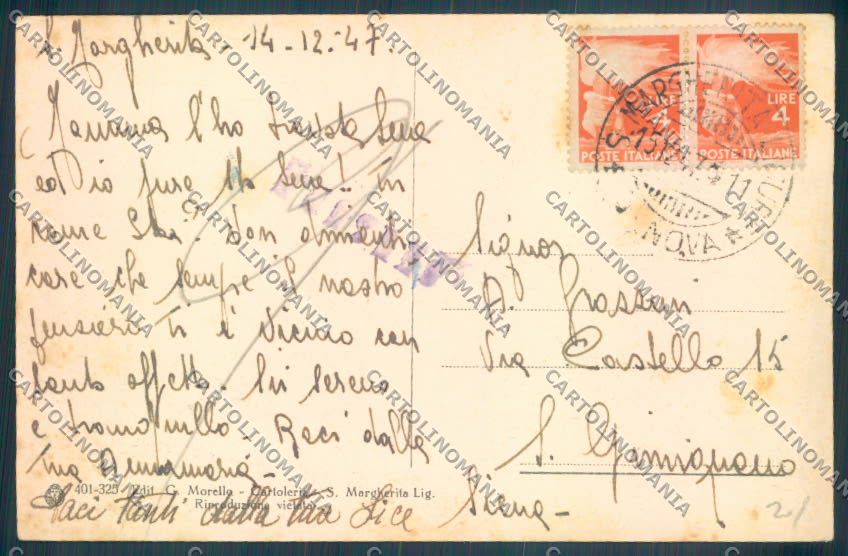 S. Margherita - 14-12-47.
Mamma l'ho trovata bene
ed io pure sto bene! 
come stai? Non dimenti
care che sempre il nostro
pensiero ti è vicino con
tanto affetto. Sii sereno
e tranquillo. Baci dalla
tua Annamaria
Baci tanti dalla tua Lice
401-325 Edit. G. Morello - Cartoleria - S. Margherita Lig.
Riproduzione vietata
LIRE 4
POSTE ITALIANE
LIRE 4
POSTE ITALIANE
S. MARGHERITA LIGURE
GENOVA
Signor
Via Castello 15
S. Gimignano
Siena -
CARTOLINOMANIA